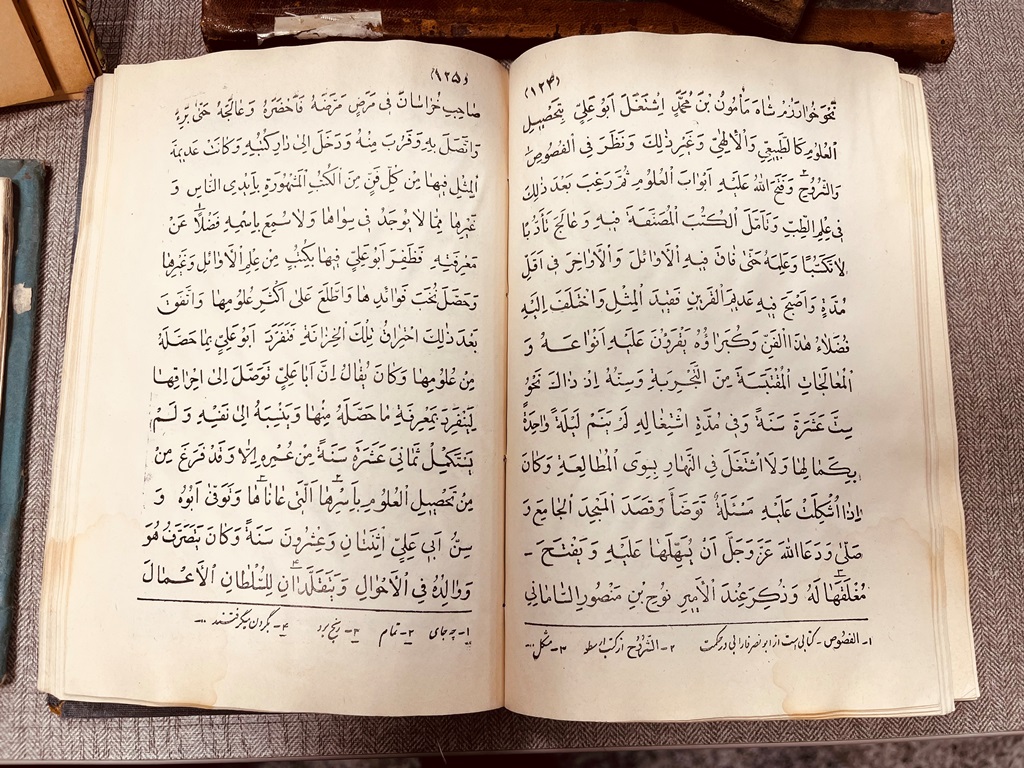 (١٢٤)
نَحْوَ خُوارَزْم شاه مَأمُونُ بْنُ مُحَمَّدٍ اِشْتَغَلَ اَبُو عَلِيٍّ بِتَحْصِيلِ
الْعُلُومِ كَالطَّبِيعِيِّ وَالْاِلٰهِيِّ وَغَيْرِ ذٰلِكَ وَنَظَرَ فِي الْفُصُوصِ١
وَالشُّرُوحِ٢ وَفَتَحَ اللهُ عَلَيْهِ اَبْوابَ الْعُلُومِ ثُمَّ رَغِبَ بَعْدَ ذٰلِكَ
فِي عِلْمِ الطِّبِّ وَتَأَمَّلَ الْكُتُبَ الْمُصَنَّفَةَ فِيهِ وَعالَجَ تَأَدُّبًا
لا تَكَسُّبًا وَعَلِمَهُ حَتّىٰ فاقَ فِيهِ الْاَوائِلَ وَالْاَواخِرَ فِي اَقَلِّ
مُدَّةٍ وَاَصْبَحَ فِيهِ عَدِيمَ الْقَرِينِ فَقِيدَ الْمِثْلِ وَاخْتَلَفَ اِلَيْهِ
فُضَلاءُ هٰذَا الْفَنِّ وَكُبَراؤُهُ يَقْرَؤُنَ عَلَيْهِ اَنْواعَهُ وَ
الْمُعالَجاتِ الْمُقْتَبَسَةَ مِنَ التَّجْرِبَةِ وَسِنُّهُ اِذْ ذاكَ نَحْوُ
سِتَّ عَشَرَةَ سَنَةً وَفِي مُدَّةِ اشْتِغالِهِ لَمْ يَنَمْ لَيْلَةً واحِدَةً
بِكَمالِها وَلَا اشْتَغَلَ فِي النَّهارِ بِسِوَى الْمُطالَعَةِ وَكانَ
اِذا اُشْكِلَتْ عَلَيْهِ مَسْئَلَةٌ تَوَضَّأَ وَقَصَدَ الْمَسْجِدَ الْجامِعَ وَ
صَلّىٰ وَدَعَا اللهَ عَزَّوَجَلَّ اَنْ يُسَهِّلَها عَلَيْهِ وَيَفْتَحَ -
مُغْلَقَها٣ لَهُ وَذُكِرَ عِنْدَ الْاَمِيرِ نُوحِ بْنِ مَنْصُورٍ السّامانِيّ
١- الفصوص - کتابی است از ابونصر فارابی در حکمت ٢- الشروح از کتب ارسطو ٣- مشکل ...
(١٢٥)
صاحِبِ خُراسانَ فِي مَرَضٍ مَرَضَهُ فَاَحْضَرَهُ وَعالَجَهُ حَتّىٰ بَرِءَ
وَاتَّصَلَ بِهِ وَقَرُبَ مِنْهُ وَدَخَلَ اِلىٰ دارِ كُتُبِهِ وَكانَتْ عَدِيمَةَ
الْمِثْلِ فِيها مِنْ كُلِّ فَنٍّ مِنَ الْكُتُبِ الْمَشْهُورَةِ بِاَيْدِي النّاسِ وَ
غَيْرِها مِمّا لا يُوجَدُ فِي سِواها وَلا سُمِعَ بِاسْمِهِ فَضْلًا١ عَنْ
مَعْرِفَتِهِ فَظَفِرَ اَبُو عَلِيٍّ فِيها بِكُتُبٍ مِنْ عِلْمِ الْاَوائِلِ وَغَيْرِها
وَحَصَّلَ نُخَبَ فَوائِدِها وَاطَّلَعَ عَلىٰ اَكْثَرِ عُلُومِها وَاتَّفَقَ
بَعْدَ ذٰلِكَ احْتِراقُ تِلْكَ الْخِزانَةِ فَتَفَرَّدَ اَبُو عَلِيٍّ بِما حَصَّلَهُ
مِنْ عُلُومِها وَكانَ يُقالُ اِنَّ اَبا عَلِيٍّ تَوَصَّلَ اِلىٰ اِحْراقِها
لِيَنْفَرِدَ بِمَعْرِفَةِ ما حَصَّلَهُ مِنْها وَيَنْسِبَهُ اِلىٰ نَفْسِهِ وَلَمْ
يَسْتَكْمِلْ ثَمانِيَ عَشَرَةَ سَنَةً مِنْ عُمْرِهِ اِلّا وَقَدْ فَرَغَ مِنْ
مِنْ تَحْصِيلِ الْعُلُومِ بِاَسْرِها٢ الَّتِي عاناها٣ وَتُوُفِّيَ اَبُوهُ وَ
سِنُّ اَبِي عَلِيٍّ اثْنَتانِ وَعِشْرُونَ سَنَةً وَكانَ يَتَصَرَّفُ هُوَ
وَوالِدُهُ فِي الْاَحْوالِ وَيَتَقَلَّدانِ٤ لِلسُّلْطانِ الْاَعْمالَ
١- چه جای ٢- تمام ٣- رنج برد ٤- بگردن میگرفتند ...